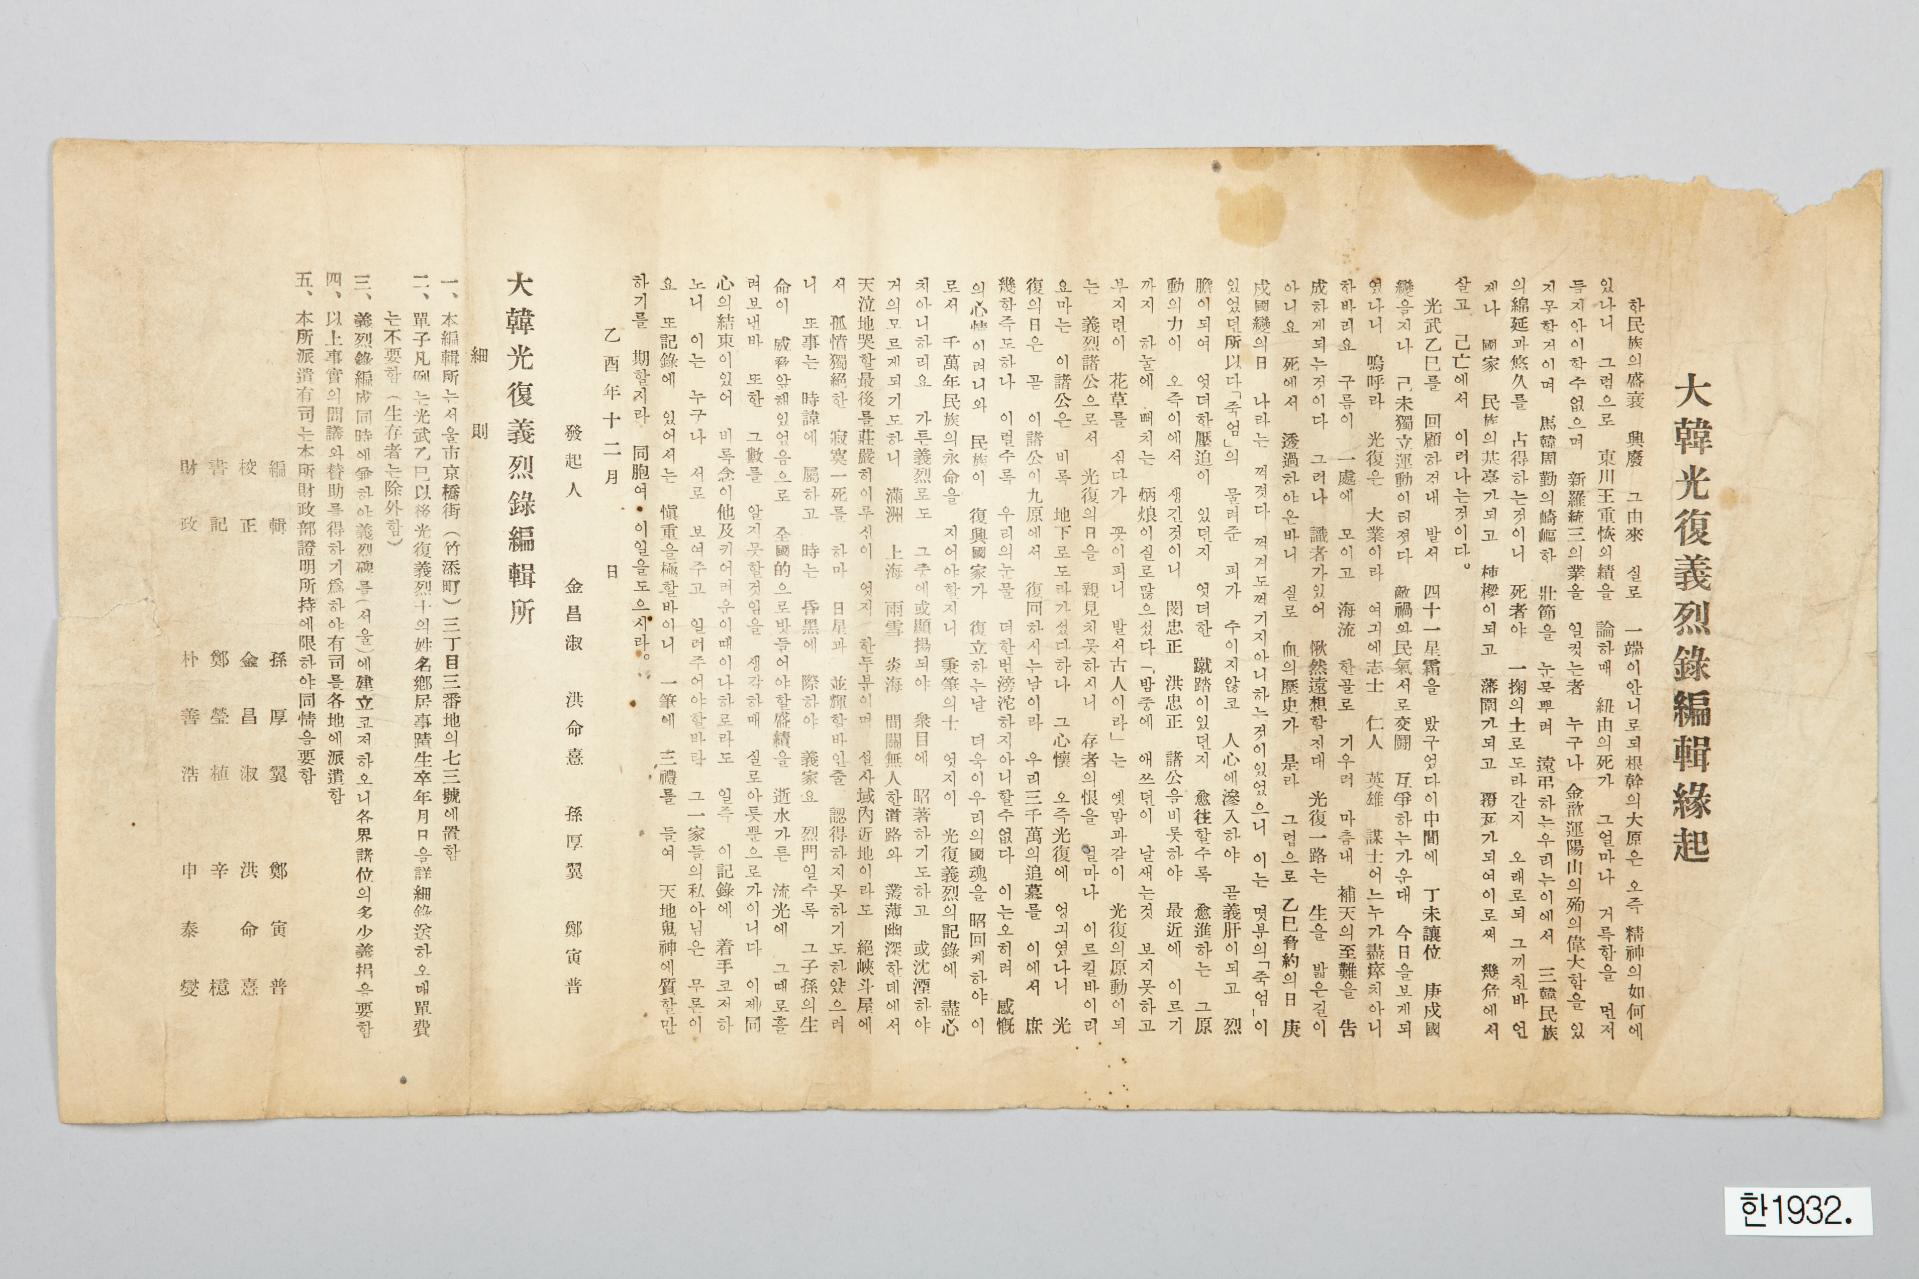 大韓光復義烈錄編輯緣起
한民族의盛衰 興廢 그由來 실로 一端이안니로되根幹의大原은 오즉 精神의如何에
있나니 그럼으로 東川王重恢의績을 論하매 紐由의死가 그얼마나 거륵함을 먼저
들지아이할수없으며 新羅統三의業을 일컷는者 누구나 金歆運陽山의殉의偉大함을 있
지못할거이며 馬韓周勤의崎嶇하 壯節을 눈물뿌려 遠弔하는우리누이에서 三韓民族
의綿延과悠久를 占得하는것이니 死者야 一掬의土로도라간지 오래로되 그끼친바 언
제나 國家 民族의基臺가되고 柿樑이되고 藩閈가되고 覆瓦가되여이로써 幾危에서
살고 己亡에서 이러나는것이다。
光武乙巳를 回顧하건대 발서 四十一星霜을 밧구었다이中間에 丁未讓位 庚戌國
變을지나 己未獨立運動이터젓다 敵禍와民氣서로交鬪 互爭하는가운대 今日을보게되
엿나니 嗚呼라 光復은 大業이라 여긔에志士 仁人 英雄 謀士어느누가盡瘁치아니
한바리요 구름이 一處에 모이고 海流 한골로 기우러 마츰내 補天의至難을 告
成하게되는것이다 그러나 識者가있어 愀然遠想할진대 光復一路는 生을 밟은길이
아니요 死에서 透過하야온바니 실로 血의歷史가 是라 그럼으로 乙巳脅約의日 庚
戌國變의日 나라는 꺽젓다 꺽겨도꺽기지아니하는것이있었으니 이는 몃분의「죽엄」이
있었던所以다「죽엄」의 물려준 피가 주이지않코 人心에滲入하야 곧義肝이되고 烈
膽이되여 엇더한壓迫이 있던지 엇더한 蹴踏이있던지 愈往할수록 愈進하는 그原
動의力이 오즉이에서 생긴것이니 閔忠正 洪忠正 諸公을비롯하야 最近에 이르기
까지 하눌에 뻐치는 炳烺이실로많으섰다「밤중에 애쓰던이 날새는것 보지못하고
부지런이 花草를 심다가 꽃이피니 발서古人이라」는 옛말과같이 光復의原動이되
는 義烈諸公으로서 光復의日을 親見치못하시니 存者의恨을 얼마나 이르킬바이리
요마는 이諸公은 비록 地下로도라가섰다하나 그心懷 오즉光復에 엉긔였나니 光
復의日은 곧 이諸公이九原에서 復回하시는날이라 우리三千萬의追慕를 이에서 庶
幾할즉도하나 이럴수록 우리의눈물 더한번滂沱하지아니할수없다 이는오히려 感慨
의心情이려니와 民族이 復興國家가 復立하는날 더욱이우리의國魂을 昭回케하야 이
로서 千萬年民族의永命을 지어야할지니 秉筆의士 엇지이 光復義烈의記錄에 盡心
치아니하리요 가튼義烈로도 그중에或顯揚되야 衆目에 昭著하기도하고 或沈湮하야
거의모르게되기도하니 滿洲 上海 雨雪 炎海 間關無人한道路와 叢薄幽深한데에서
天泣地哭할最後를莊嚴히이루신이 엇지 한두분이며 설사域內近地이라도 絕峽斗屋에
서 孤憤獨絕한 寂寞一死를 하마 日星과 並輝할바인줄 認得하지못하기도하얐으려
니 또事는 時諱에 屬하고 時는 昏黑에 際하야 義家요 烈門일수록 그子孫의生
命이 威脅앞해있었음으로 全國的으로밧들어야할盛績을 逝水가튼 流光에 그때로흘
려보낸바 또한 그數를 알지못할것임을 생각하매 실로아득뿐으로가이니다 이제同
心의結束이있어 비록念이他及키어려운이때이나하로라도 일즉 이記錄에 着手코저하
노니 이는 누구나 서로 보여주고 일려주어야할바라 그一家들의私아님은 무론이
요 또記錄에 있어서는 愼重을極할바이니 一筆에 三禮를 들여 天地鬼神에質할만
하기를 期할지라 同胞여 이일을도으시라。
乙酉年十二月 日
發起人 金昌淑 洪命憙 孫厚翼 鄭寅普
大韓光復義烈錄編輯所
細則
一、本編輯所는서울市京橋街(竹添町)三丁目三番地의七三號에置함
二、單子凡例는光武乙巳以後光復義烈士의姓名鄉居事蹟生卒年月日을詳細錄送하오대單費
는不要함(生存者는除外함)
三、義烈錄編成同時에兼하야義烈碑를(서울)에建立코저하오니各界諸位의多少義捐을要함
四、以上事實의問議와贊助를得하기爲하야有司를各地에派遣함
五、本所派遣有司는本所財政部證明所持에限하야同情을要함
編輯 孫厚翼 鄭寅普
校正 金昌淑 洪命憙
書記 鄭瑩植 辛檍
財政 朴善浩 申泰燮
한1932.